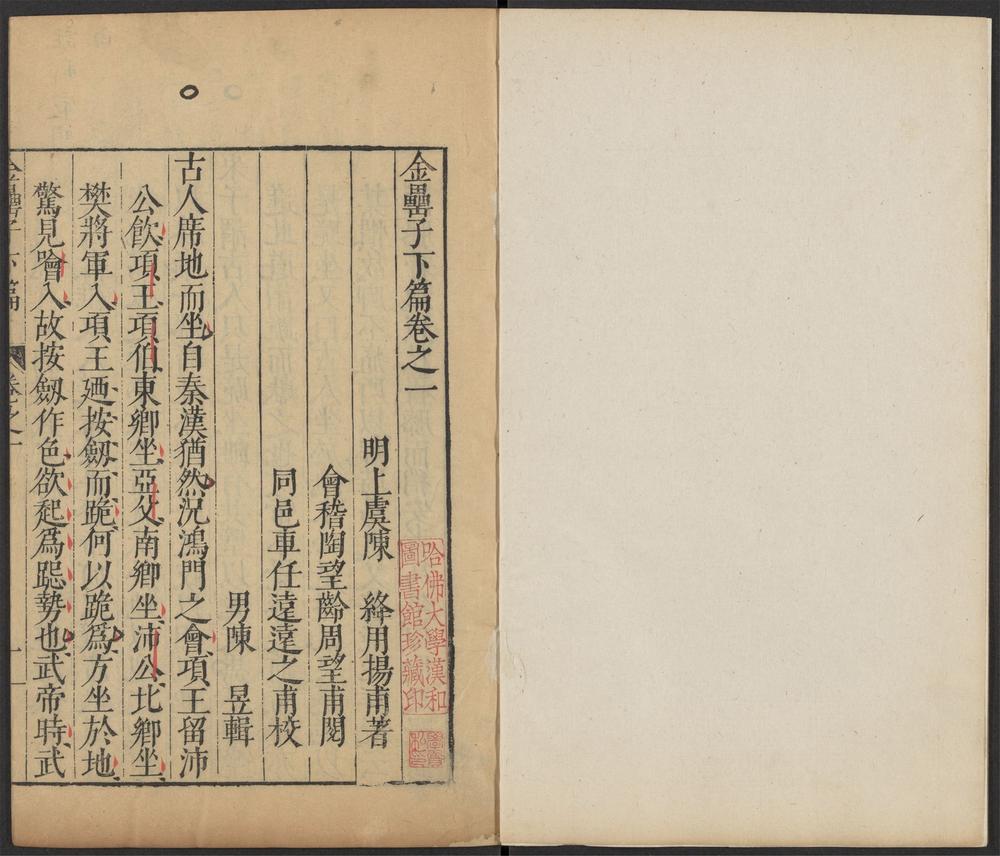 金罍子下篇卷之一
明上虞陳　絳用揚甫著
會稽陶望齡周望甫閱
同邑車任遠遠之甫校
男陳　昱輯
古人席地而坐自秦漢猶然況鴻門之會項王留沛
公飲項王項伯東鄉坐亞父南鄉坐沛公北鄉坐
樊將軍入項王廼按劔而跪何以跪爲方坐於地
驚見噲入故按劔作色欲起爲跽勢也武帝時武
金罍子下篇
卷之一
一
哈佛大學漢和
圖書館珍藏印